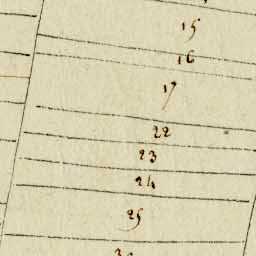 15
16
17
22
23
24
25